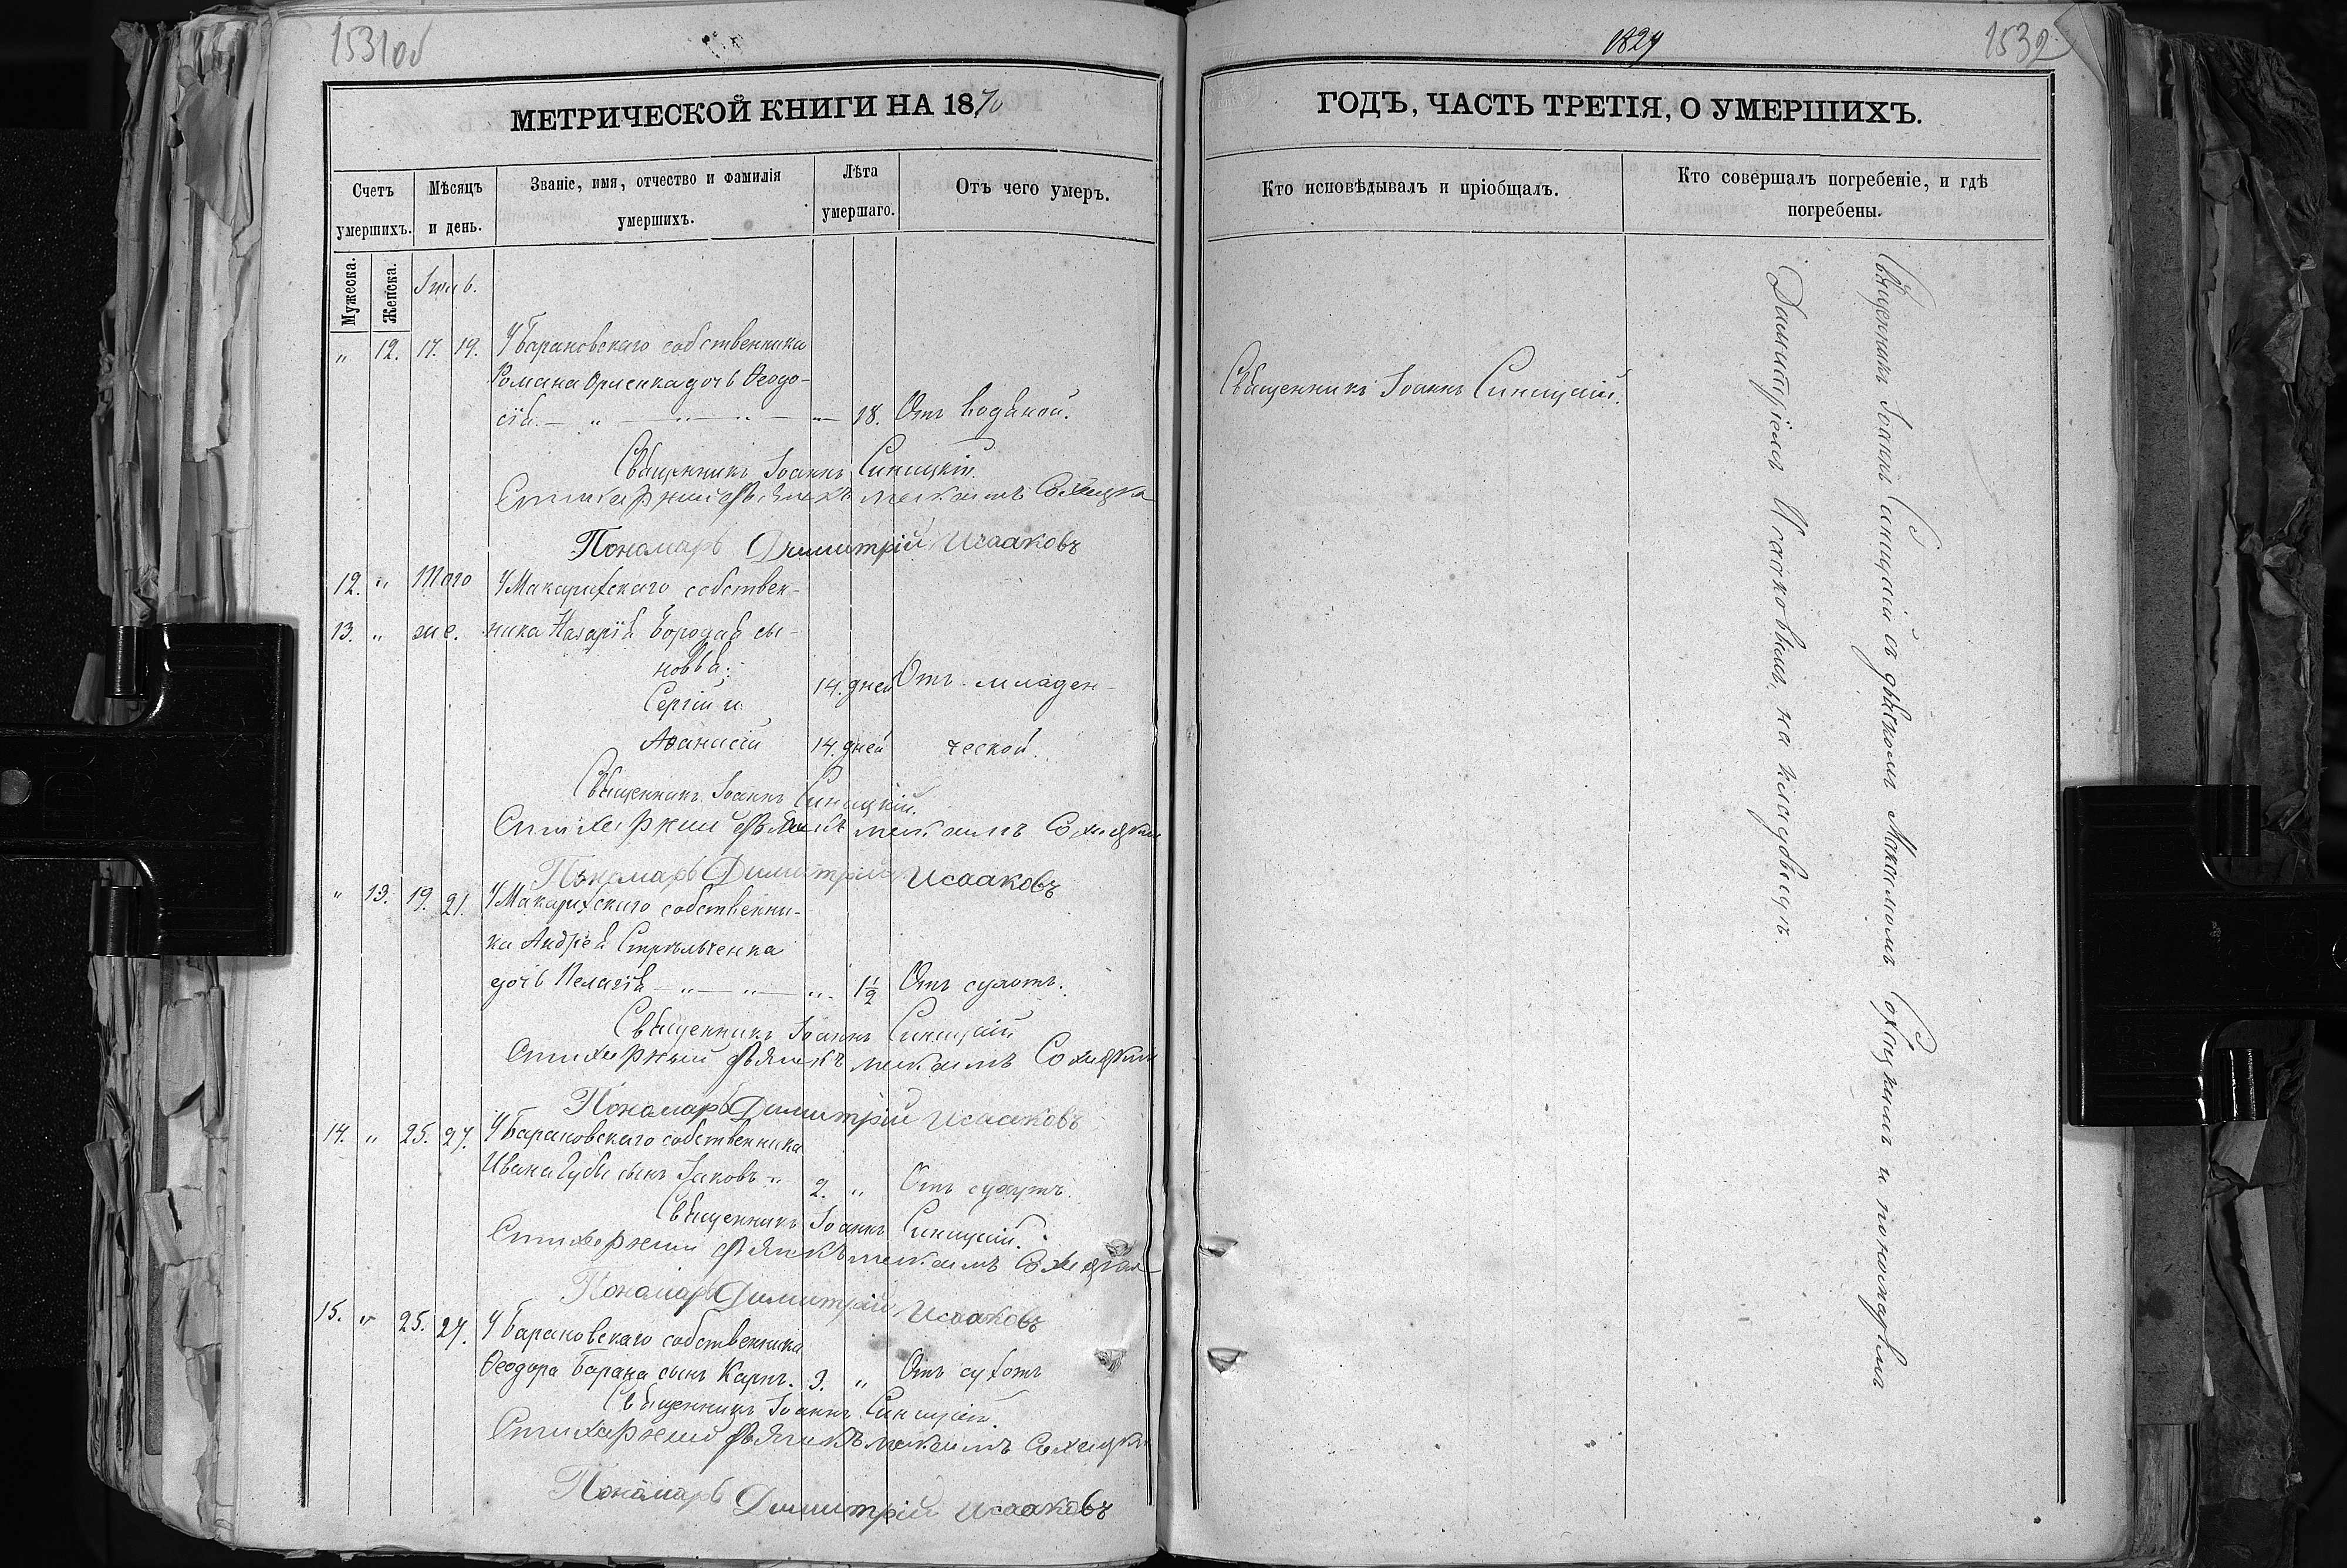 1531об
МЕТРИЧЕСКОЙ КНИГИ НА 1870
Счетъ умершихъ.
Мужеска.
Женска.
Мѣсяцъ и день.
Званіе, имя, отчество и фамилія умершихъ.
Лѣта умершаго.
Отъ чего умеръ.
" 12. 17. 19. У Барановскаго собственника
Романа Орленка дочь Ѳеодо-
сія. — " — " — " — 18. Отъ водяной.
Священникъ Іоаннъ Синицкій.
Стихарный Дьячекъ
Пономарь Димитрій Исааковъ
12. " Того У Макарихскаго собствен-
13. " же. ника Назарія Бородая сы-
новья:
Сергій и 14. дней Отъ младен-
Аѳанасій 14. дней ческой.
Священникъ Іоаннъ Синицкій.
Стихарный Дьячекъ
Пономарь Димитрій Исааковъ
" 13. 19. 21. У Макарихскаго собственни-
ка Андрея Стрѣльченка
дочь Пелагія — " — " — " 1½ Отъ сухотъ.
Священникъ Іоаннъ Синицкій
Стихарный Дьячекъ
Пономарь Димитрій Исааковъ
14. " 25. 27. У Барановскаго собственника
Ивана Губы сынъ Іаковъ " 2. " Отъ сухотъ.
Священникъ Іоаннъ Синицкій.
Стихарный Дьячекъ
Пономарь Димитрій Исааковъ
15. " 25. 27. У Барановскаго собственника
Ѳеодора Барана сынъ Карпъ. 3. " Отъ сухотъ
Священникъ Іоаннъ Синицкій.
Стихарный Дьячекъ
Пономарь Димитрій Исааковъ
1532
ГОДЪ, ЧАСТЬ ТРЕТІЯ, О УМЕРШИХЪ.
Кто исповѣдывалъ и пріобщалъ.
Кто совершалъ погребеніе, и гдѣ погребены.
Священникъ Іоаннъ Синицкій.
Священникъ Іоаннъ Синицкій съ дьячкомъ и пономаремъ
Димитріемъ Исааковымъ, на кладбищѣ.